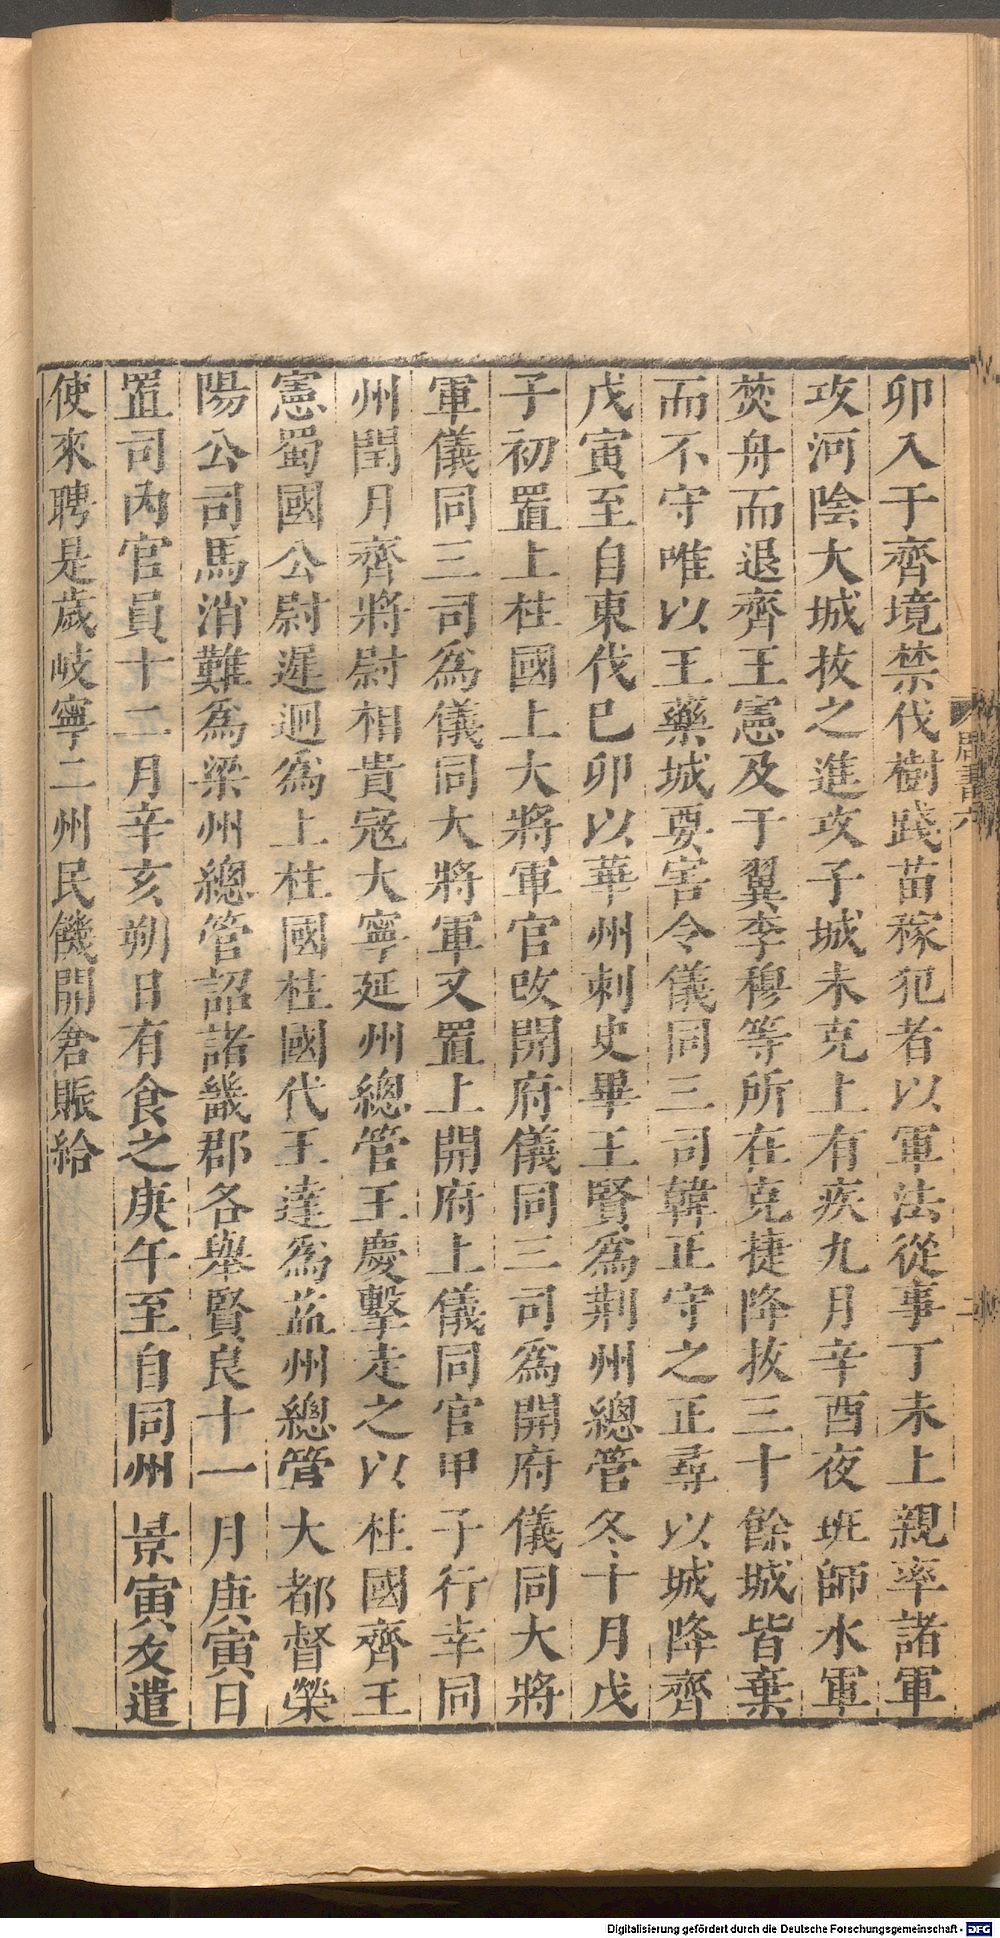 卯入于齊境禁伐樹踐苗稼犯者以軍法從事丁未上親率諸軍
攻河陰大城拔之進攻子城未克上有疾九月辛酉夜班師水軍
焚舟而退齊王憲及于翼李穆等所在克捷降拔三十餘城皆棄
而不守唯以王藥城要害令儀同三司韓正守之正尋以城降齊
戊寅至自東伐巳卯以華州刺史畢王賢爲荆州總管冬十月戊
子初置上柱國上大將軍官改開府儀同三司爲開府儀同大將
軍儀同三司爲儀同大將軍又置上開府上儀同官甲子行幸同
州閏月齊將尉相貴寇大寧延州總管王慶擊走之以柱國齊王
憲蜀國公尉遲迥爲上柱國柱國代王達爲益州總管大都督榮
陽公司馬消難爲梁州總管詔諸畿郡各舉賢良十一月庚寅日
置司內官員十二月辛亥朔日有食之庚午至自同州景寅友遣
使來聘是歲岐寧二州民饑開倉賑給
周書六
二
Digitalisierung gefördert durch die Deutsche Forschungsgemeinschaft - DFG